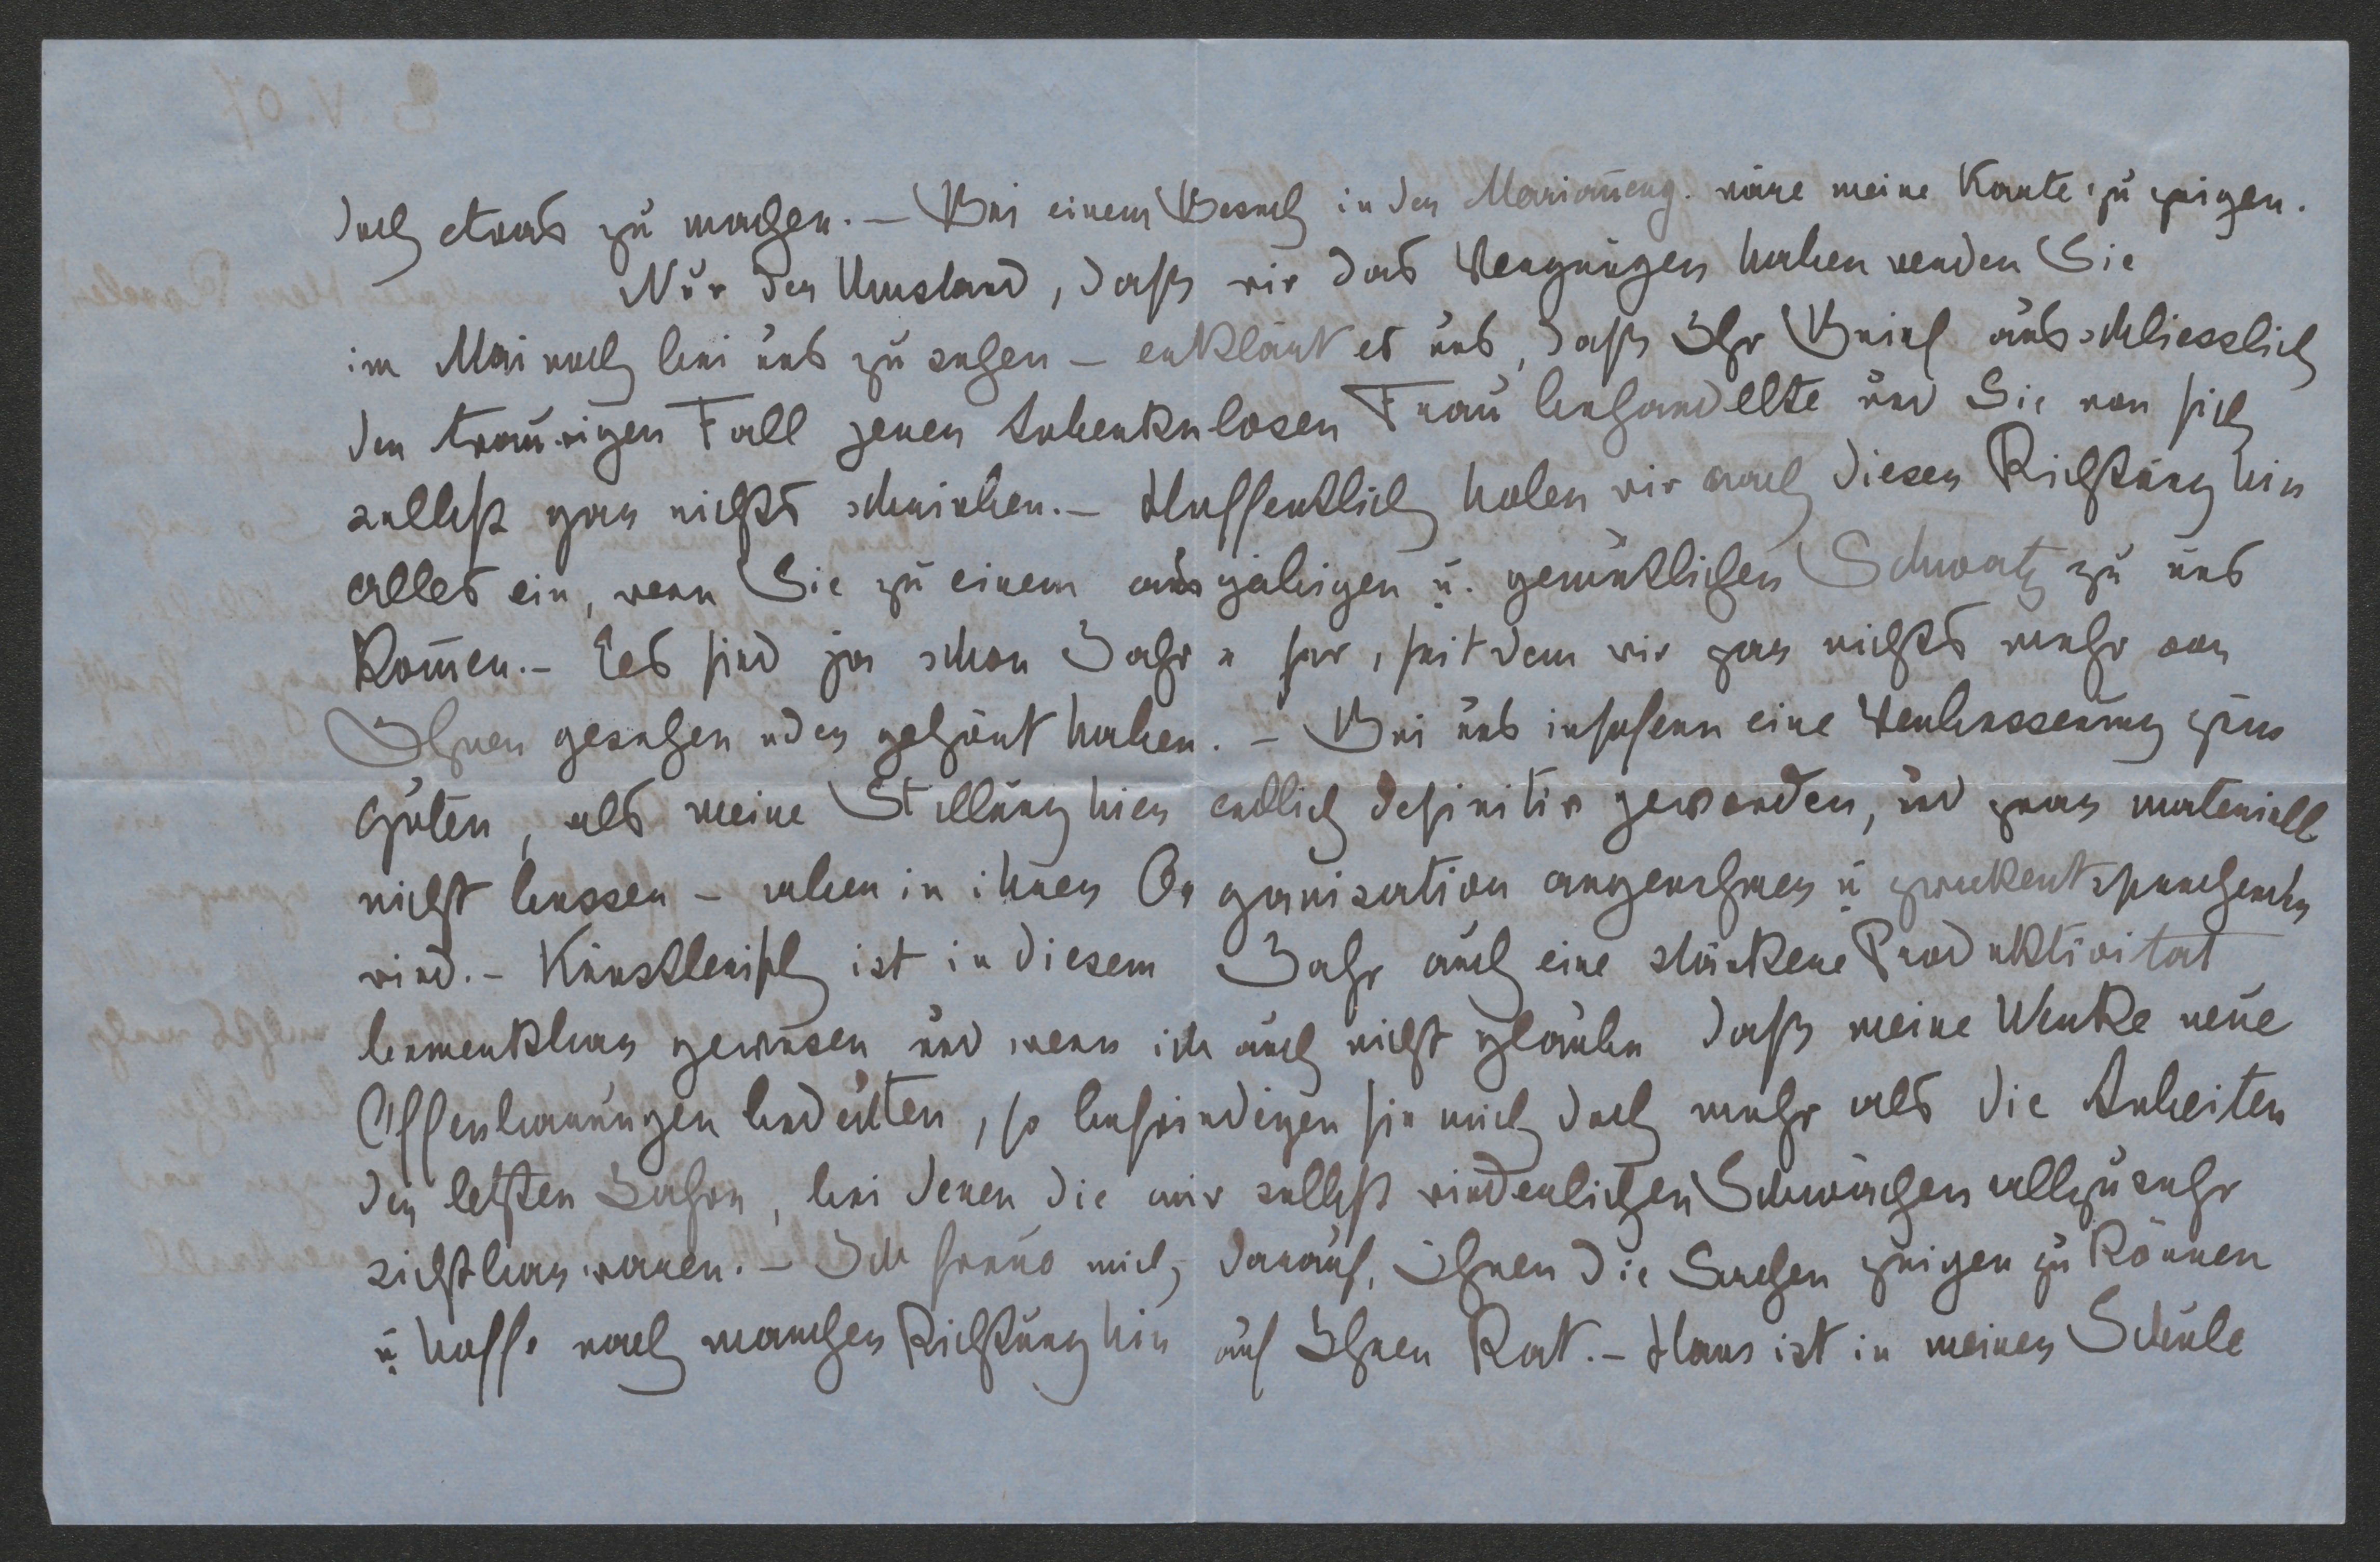 doch etwas zu machen. – Bei einem Besuch in der Marianneng. wäre meine Karte zu zeigen.
Nur der Umstand, daß wir das Vergnügen haben werden Sie
im Mai noch bei uns zu sehen – erklärt es uns, daß Ihr Brief ausschliesslich
den traurigen Fall jener Frau behandelte und Sie von sich
selbst gar nichts schrieben. – Hoffentlich holen wir nach dieser Richtung hin
alles ein, wenn Sie zu einem ausgiebigen u. gemütlichen Schwatz zu uns
kom̅en. – Es sind ja schon Jahre her, seitdem wir gar nichts mehr von
Ihnen gesehen oder gehört haben. – Bei uns insofern eine Verbesserung zum
guten, als meine Stellung hier endlich definitiv geworden, und zwar materiell
nicht besser – aber in ihrer Organisation angenehmer u. zweckentsprechender
wird. – Künstlerisch ist in diesem Jahr auch eine stärkere Produktivität
bemerkbar gewesen und wenn ich auch nicht glaube daß meine Werke neue
Offenbarungen bedeuten, so befriedigen sie mich doch mehr als die Arbeiten
der letzten Jahre, bei denen die mir selbst widerlichen Schwächen allzusehr
sichtbar waren. – Ich freue mich darauf, Ihnen die Sachen zeigen zu können
u. hoffe nach mancher Richtung hin auf Ihren Rat. – Hans ist in meiner Schule